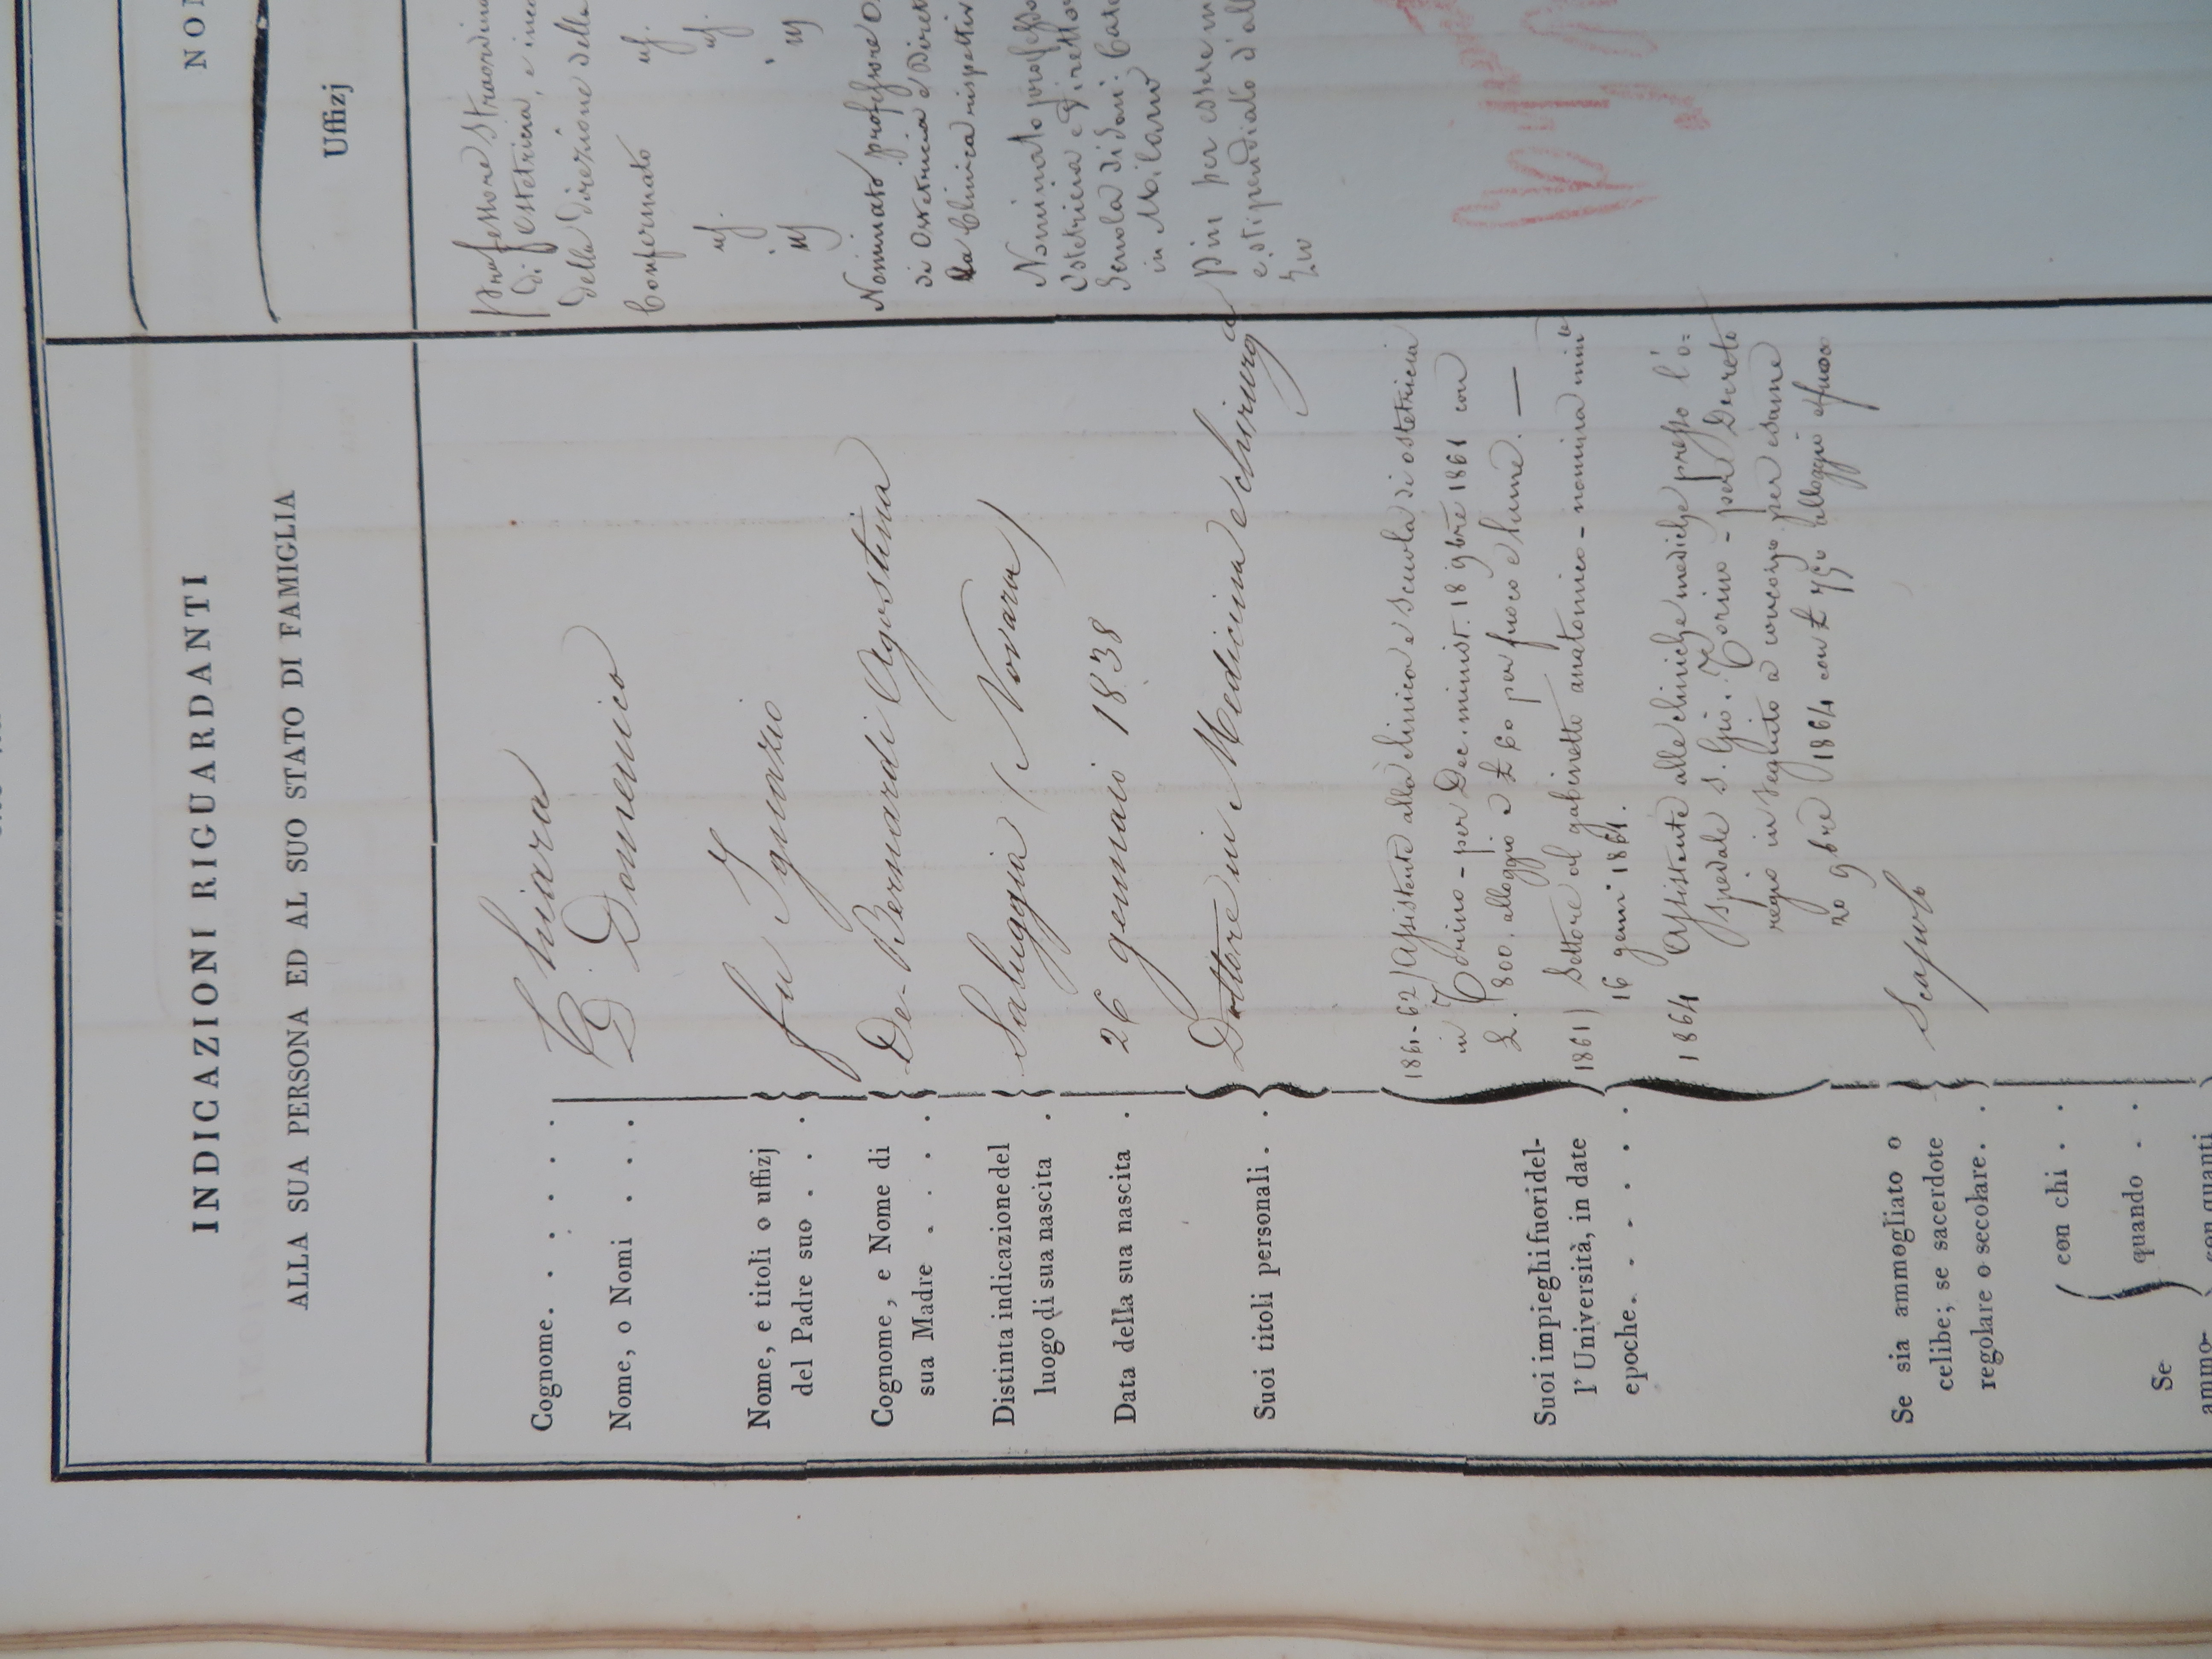 INDICAZIONI RIGUARDANTI
ALLA SUA PERSONA ED AL SUO STATO DI FAMIGLIA
Cognome. . . . . . Chiara
Nome, o Nomi . . . . Domenico
Nome, e titoli o uffizj
del Padre suo . . . . fu Ignazio
Cognome, e Nome di
sua Madre . . . . De-Bernardi Agostina
Distinta indicazione del
luogo di sua nascita . Saluggia (Novara)
Data della sua nascita . 26 gennaio 1838
Suoi titoli personali. . Dottore in Medicina e chirurgia
Suoi impieghi fuori del-
l'Università, in date
epoche. . . . . .
1861-62) Assistente alla clinica e scuola di ostetricia
in Torino - per Dec. minist. 18 9bre 1861 con
L. 800. alloggio e £ 60 per fuoco e lume. —
1861) Settore al gabinetto anatomico - nomina
16 genn 1861.
1864 Assistente alle cliniche mediche presso l'o=
spedale S. Gio. Torino - per Decreto
regio in seguito a concorso per esame
20 9bre 1864 con £ 750 alloggio
Se sia ammogliato o
celibe; se sacerdote
regolare o secolare. . Scapolo
Se
ammo-
con chi . .
quando . .
con quanti
NO
Uffizj
Professore Straordin
di Ostetricia, e inc
della Direzione della
Confermato id.
id. id.
id id
Nominato professore O
di Ostetricia e Diret
la Clinica rispettiv
Nominato professo
Ostetricia e Diretto
Scuola di
in Milano
Pini per essere
e stipendiato d'al